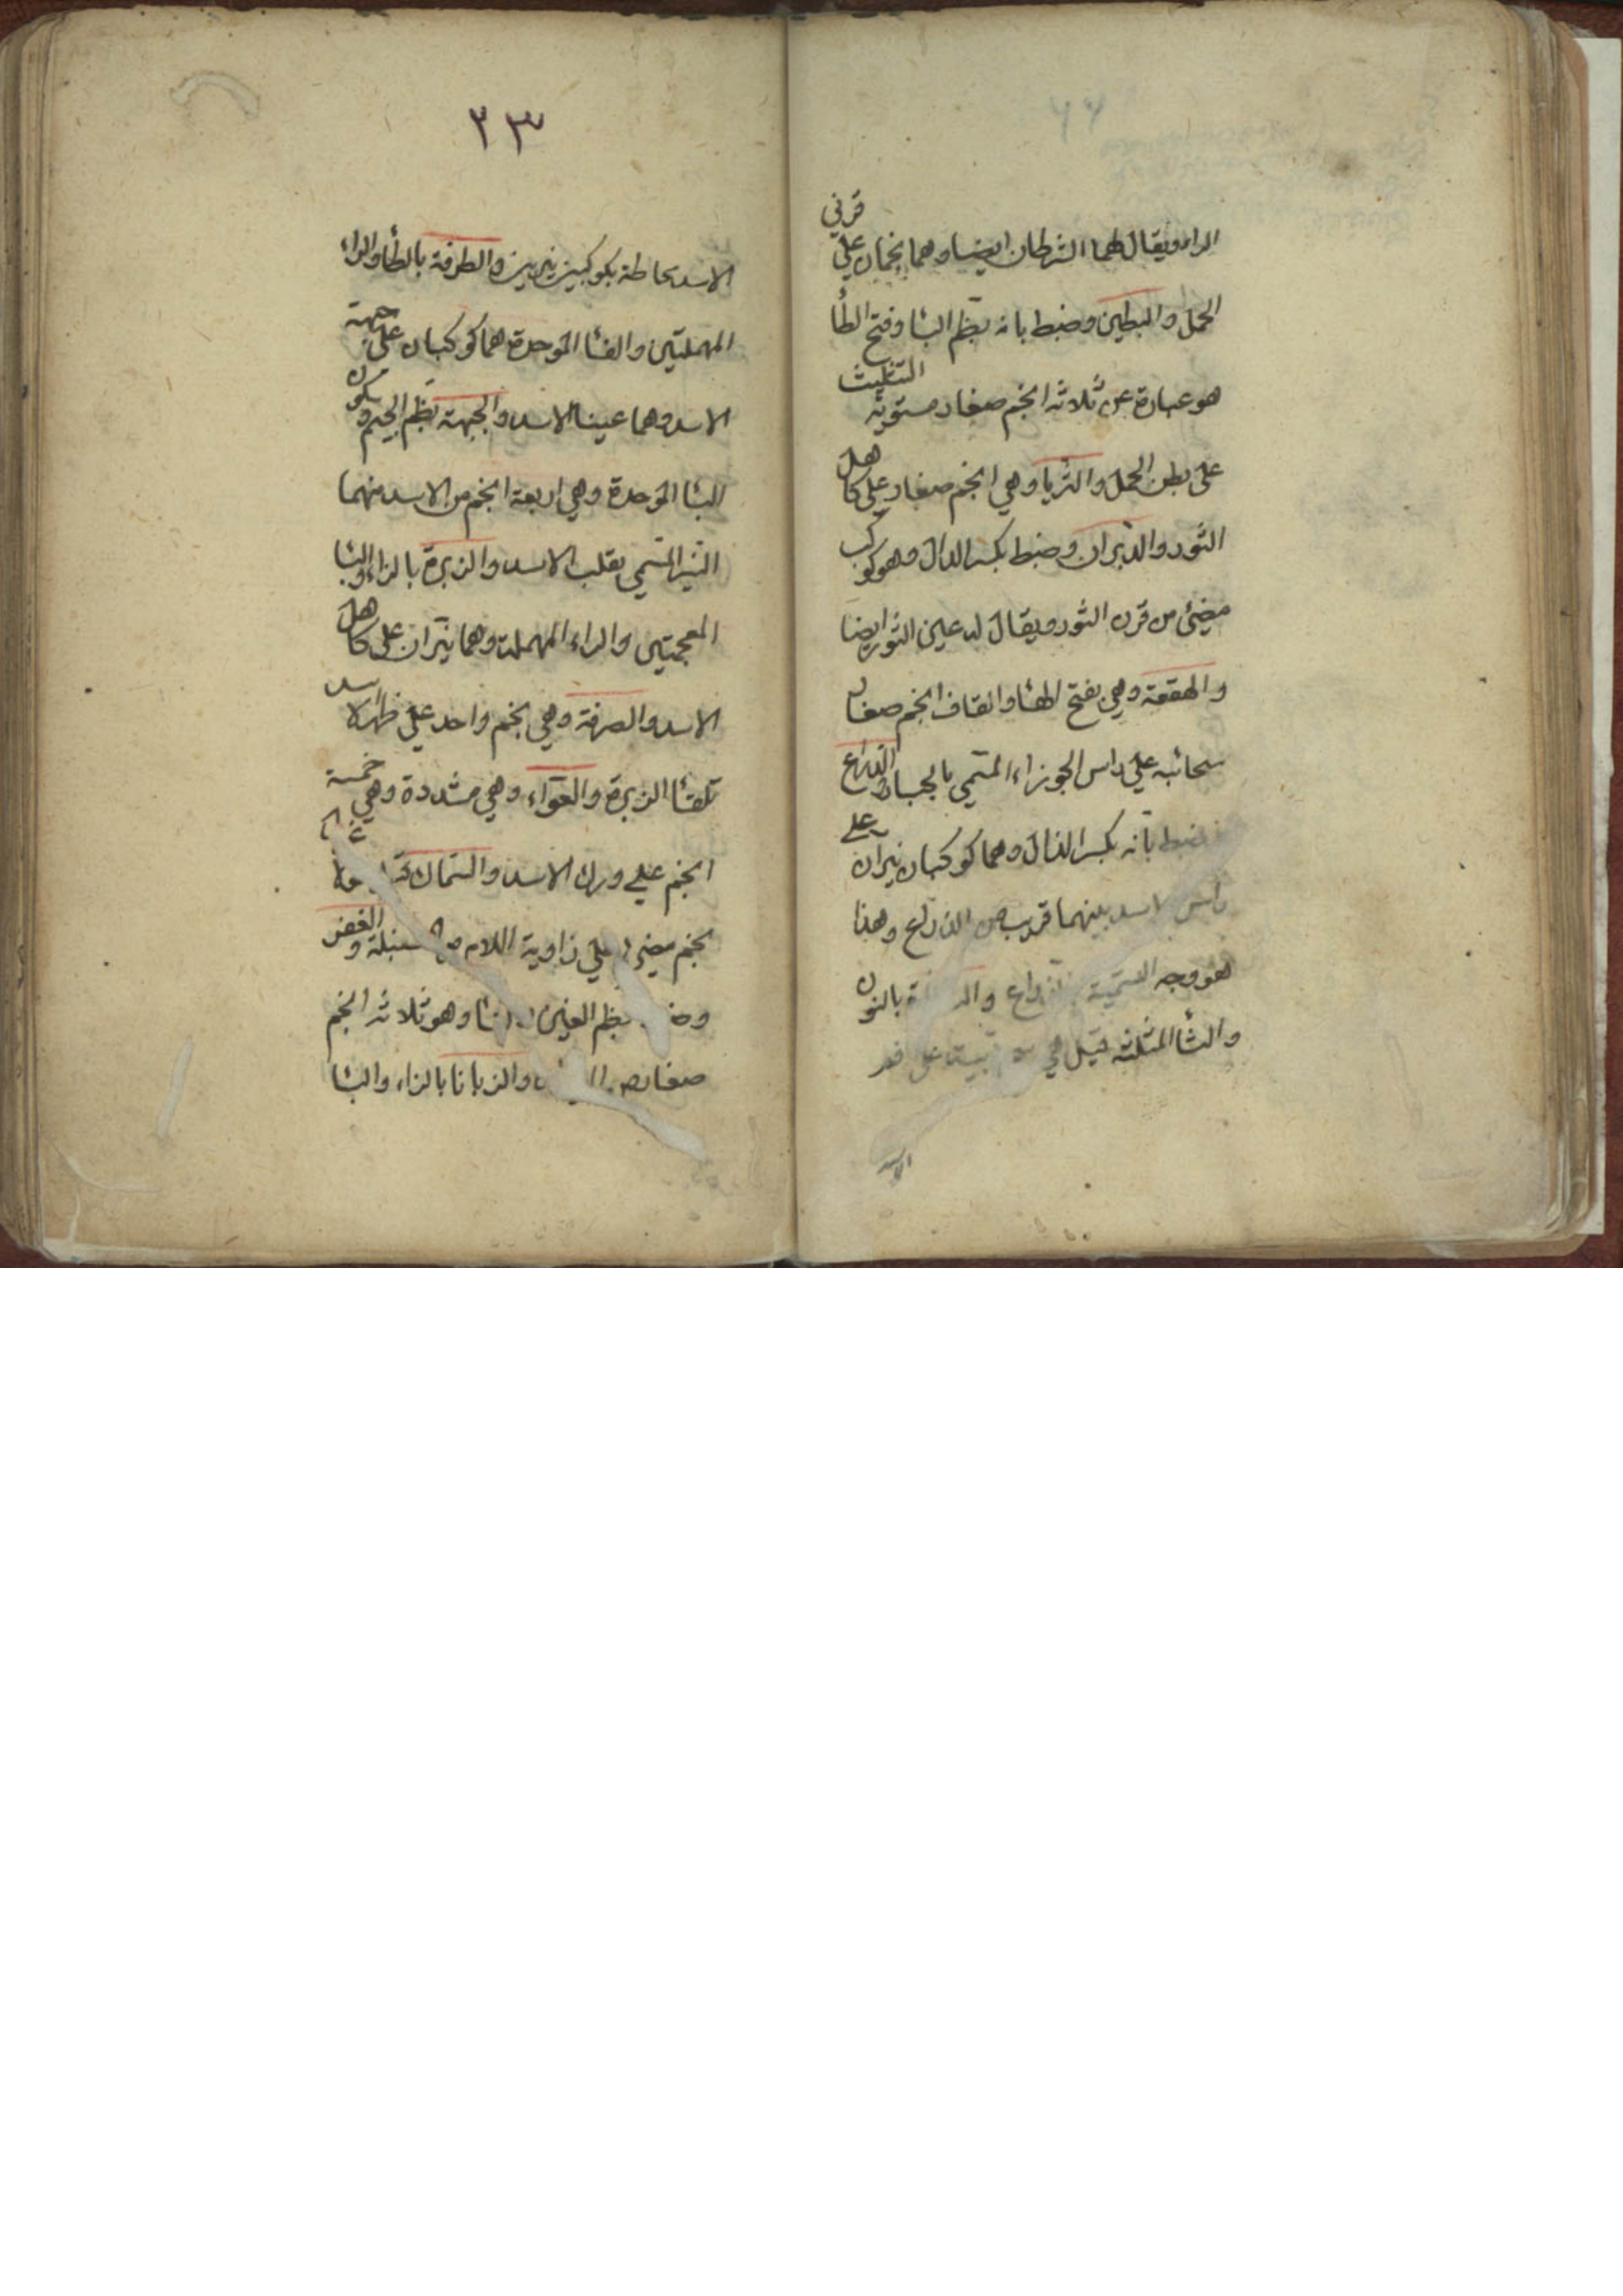 الراء ويقال لهما الشرطان ايضا وهما نجمان علي قرني
الحمل والبطين وضبط بانه بظم البا وفتح الطا
هو عبارة عن ثلاثة انجم صغار مستوية التثليث
علي بطن الحمل والثريا وهي انجم صغار علي كاهل
الثور والدبران وضبط بكسر الدال وهو كوكب
مضئ من قرن الثور ويقال له عين الثور ايضا
والهقعة وهي بفتح الها والقاف انجم صغار
سحائبه علي راس الجوزاء المسمي بالجبار والذراع
ضبط بانه بكسر الذال وهما كوكبان نيران علي
راس الاسد بينهما قريب من الذراع وهذا
هو وجه التسمية بالذراع بالنون
والثا المثلثه قيل هي
الاسد
٣٣
الاسد بحاطة بكوكبين نيرين والطرفة بالطا والراء
المهملتين والفا الموحدة هما كوكبان علي جبهة
الاسد وهما عينا الاسد والجبهة بظم الجيم وسكون
البا الموحدة وهي اربعة انجم من الاسد منهما
النير المسمي بقلب الاسد والزبرة بالزاء والبا
المعجمتين والراء المهملة وهما نيران علي كاهل
الاسد والصرفة وهي نجم واحد علي ظهر الاسد
تلقا الزبرة والعواء وهي مشددة وهي خمسة
انجم علي ورك الاسد والسماك
نجم مضئ علي زاوية اللام من السنبلة والغفر
بظم الغين وهو ثلاثة انجم
صغار والزبانا بالزاء والبا